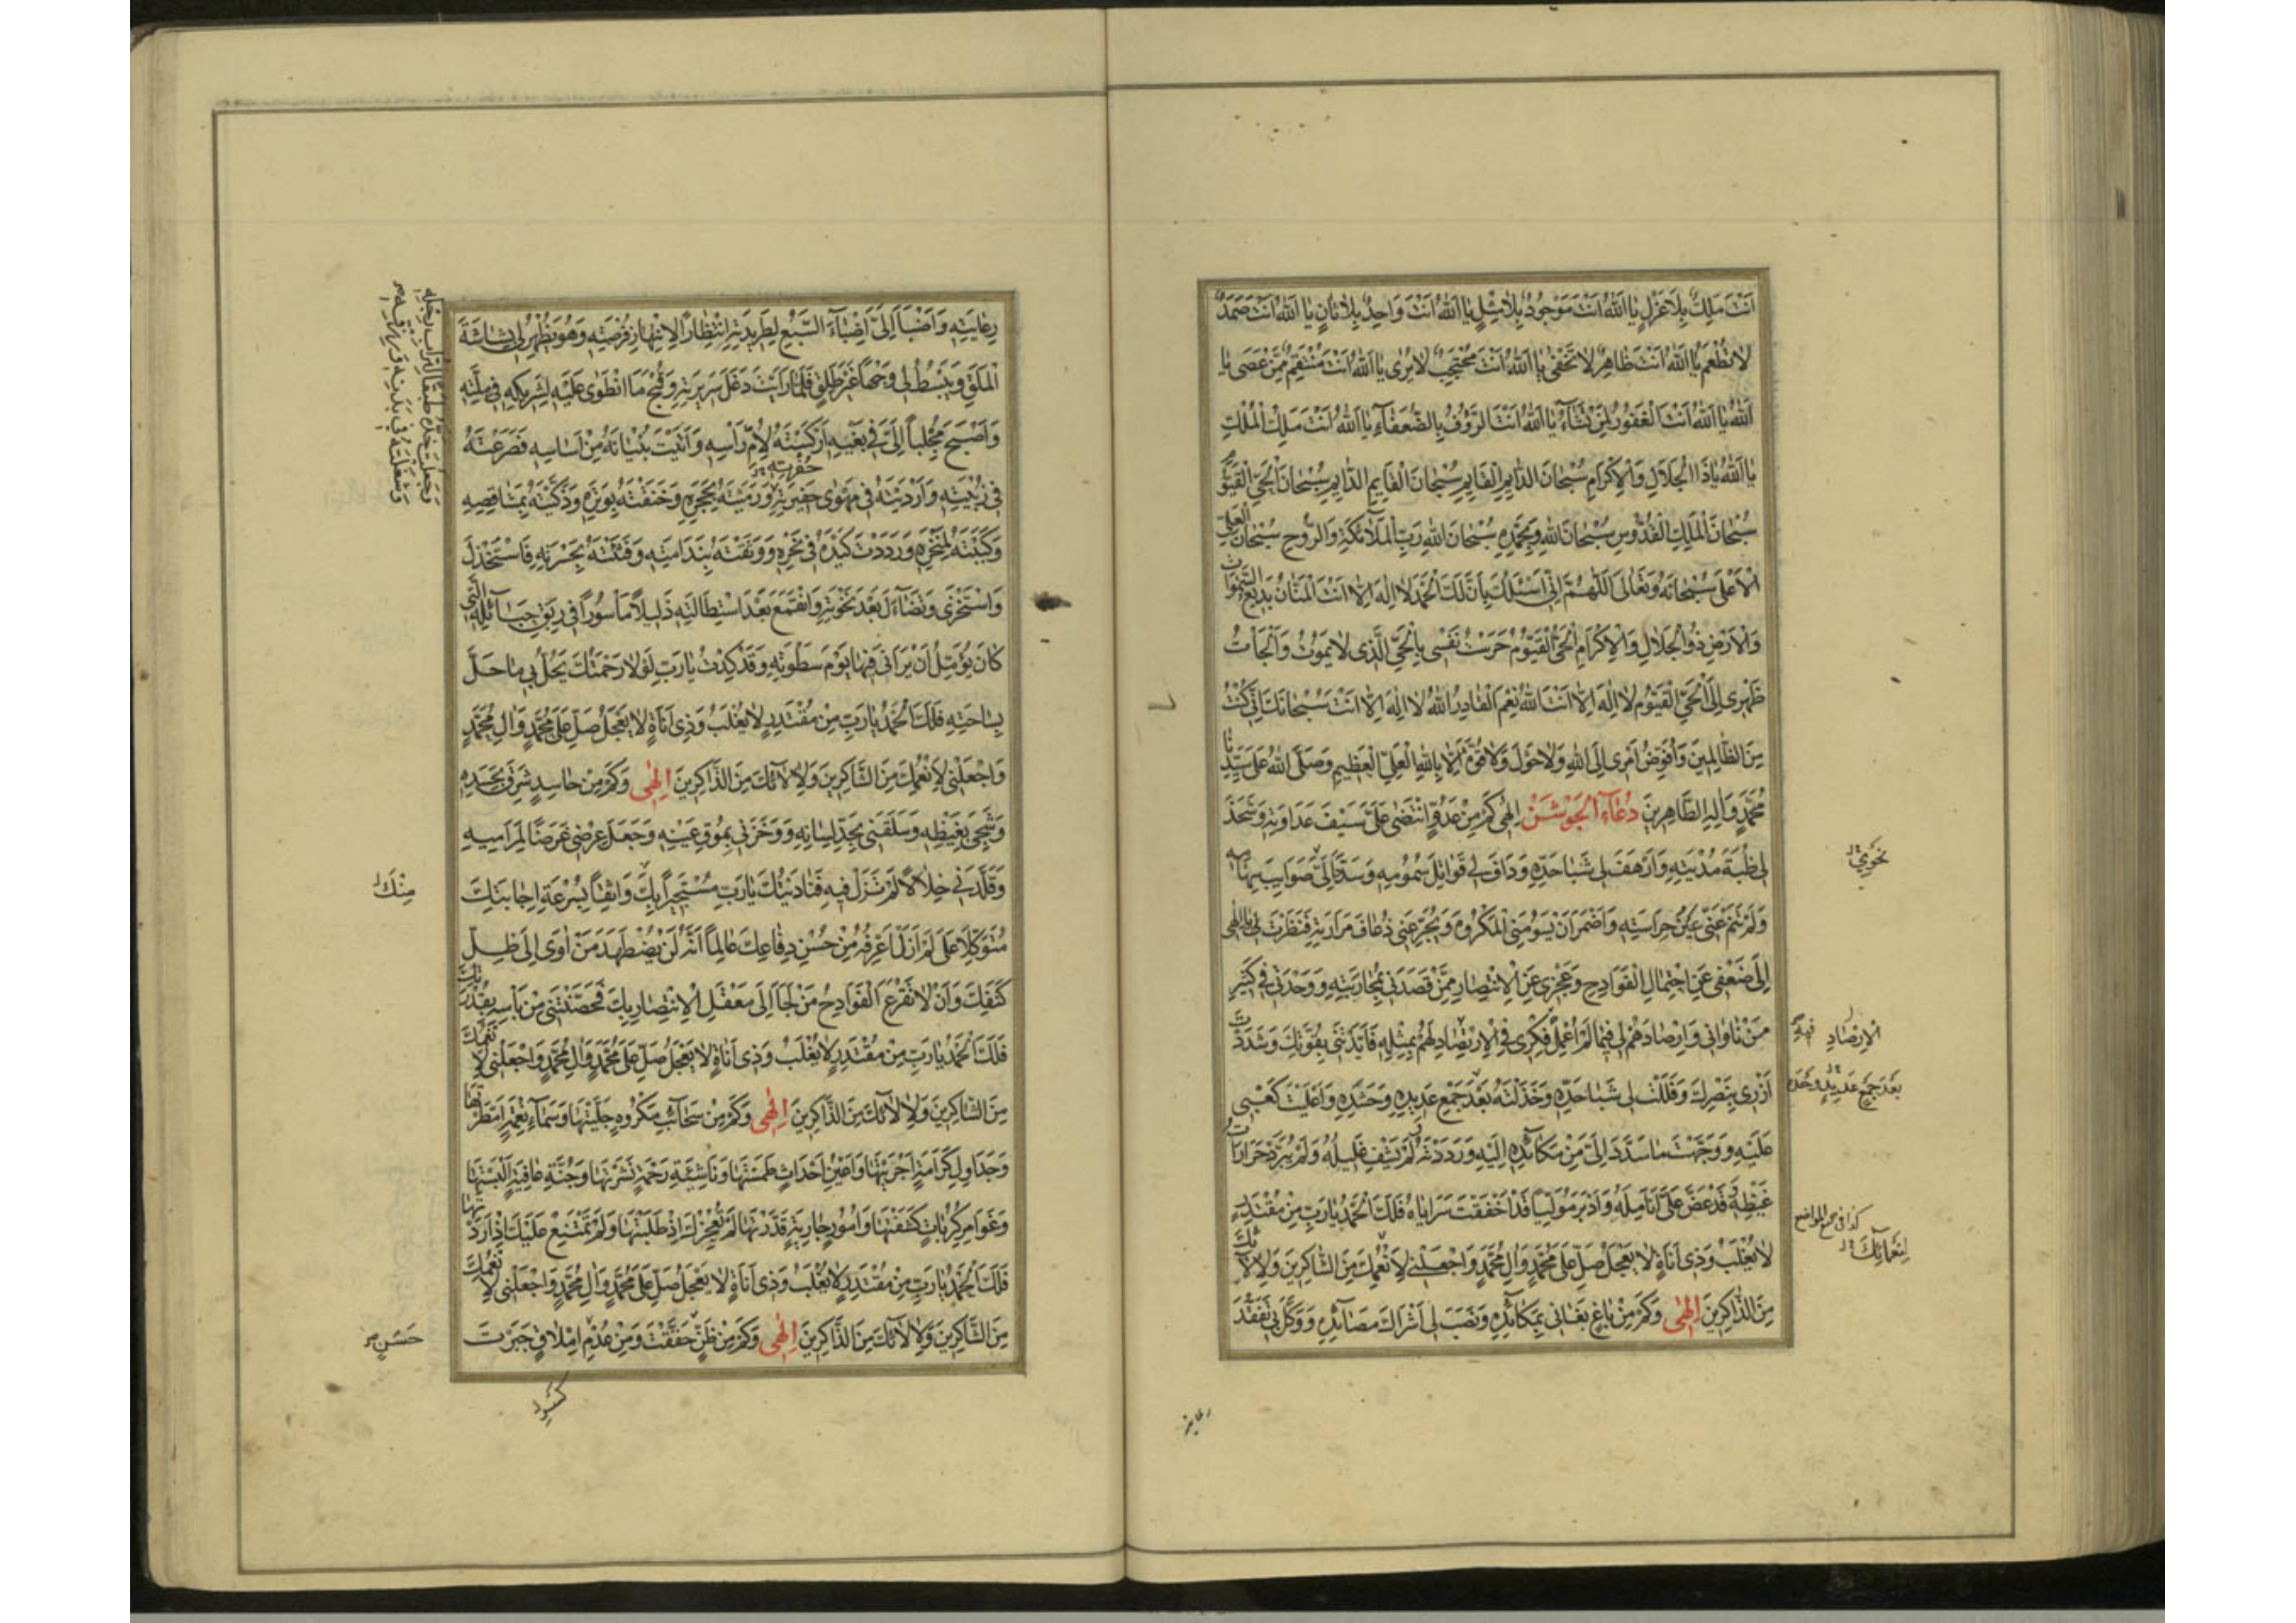 اَنْتَ مَلِكٌ بِلَا عَزْلٍ يٰا اَللّٰهُ اَنْتَ مَوْجُودٌ بِلٰا مِثْلٍ يٰا اَللّٰهُ اَنْتَ وَاحِدٌ بِلٰا ثٰانٍ يٰا اَللّٰهُ اَنْتَ صَمَدٌ
لٰا تُطْعَمُ يٰا اَللّٰهُ اَنْتَ ظٰاهِرٌ لٰا تَخْفٰى يٰا اَللّٰهُ اَنْتَ مُحْتَجِبٌ لٰا يُرٰى يٰا اَللّٰهُ اَنْتَ مُنْتَقِمٌ مِمَّنْ عَصَى يٰا
اَللّٰهُ يٰا اَللّٰهُ اَنْتَ الْغَفُورُ لِمَنْ تَشٰاءُ يٰا اَللّٰهُ اَنْتَ الرَّؤُفُ بِالضُّعَفٰاءِ يٰا اَللّٰهُ اَنْتَ مَلِكُ الْمُلْكِ
يٰا اَللّٰهُ يٰا ذَا الْجَلَالِ وَالْاِكْرَامِ سُبْحٰانَ الدّٰايِمِ الْقٰايِمِ سُبْحٰانَ الْقٰايِمِ الدّٰايِمِ سُبْحٰانَ الْحَيِّ الْقَيُّومِ
سُبْحٰانَ الْمَلِكِ الْقُدُّوسِ سُبْحٰانَ اللّٰهِ وَبِحَمْدِهِ سُبْحٰانَ اللّٰهِ رَبِّ الْمَلٰائِكَةِ وَالرُّوحِ سُبْحٰانَ الْعَلِيِّ
الْاَعْلَى سُبْحٰانَهُ وَتَعٰالَى اَللّٰهُمَّ اِنِّي اَسْئَلُكَ بِاَنَّ لَكَ الْحَمْدَ لٰا اِلٰهَ اِلّٰا اَنْتَ الْمَنّٰانُ بَدِيعُ السَّمٰوَاتِ
وَالْاَرْضِ ذُو الْجَلَالِ وَالْاِكْرَامِ الْحَيُّ الْقَيُّومُ حَرَسْتُ نَفْسِي بِالْحَيِّ الَّذِي لٰا يَمُوتُ وَاَلْجَأْتُ
ظَهْرِي اِلَى الْحَيِّ الْقَيُّومِ لٰا اِلٰهَ اِلّٰا اَنْتَ اللّٰهُ نِعْمَ الْقٰادِرُ اللّٰهُ لٰا اِلٰهَ اِلّٰا اَنْتَ سُبْحٰانَكَ اِنِّي كُنْتُ
مِنَ الظّٰالِمِينَ وَاُفَوِّضُ اَمْرِي اِلَى اللّٰهِ وَلٰا حَوْلَ وَلٰا قُوَّةَ اِلّٰا بِاللّٰهِ الْعَلِيِّ الْعَظِيمِ وَصَلَّى اللّٰهُ عَلَى سَيِّدِنٰا
مُحَمَّدٍ وَاٰلِهِ الطّٰاهِرِينَ دُعٰاءِ الْجَوْشَنْ اِلٰهِي كَمْ مِنْ عَدُوٍّ انْتَضٰى عَلَيَّ سَيْفَ عَدَاوَتِهِ وَشَحَذَ
لِي ظُبَةَ مُدْيَتِهِ وَاَرْهَفَ لِي شَبٰا حَدِّهِ وَدَافَ لِي قَوَاتِلَ سُمُومِهِ وَسَدَّدَ اِلَيَّ صَوَايِبَ سِهٰامِهِ
نَحْوِي
وَلَمْ تَنَمْ عَنِّي عَيْنُ حِرَاسَتِهِ وَاَضْمَرَ اَنْ يَسُومَنِي الْمَكْرُوهَ وَيُجَرِّعَنِي ذُعٰافَ مَرَارَتِهِ فَنَظَرْتَ لِي يٰا اِلٰهِي
اِلَى ضَعْفِي عَنِ احْتِمٰالِ الْفَوَادِحِ وَعَجْزِي عَنِ الْاِنْتِصٰارِ مِمَّنْ قَصَدَنِي بِمُحٰارَبَتِهِ وَوَحْدَتِي فِي كَثِيرِ
مَنْ نٰاوٰانِي وَاِرْصٰادَهُمْ لِي فِيمٰا لَمْ اُعْمِلْ فِكْرِي فِي الْاِرْتِصٰادِ لَهُمْ بِمِثْلِهِ فَاَيَّدْتَنِي بِقُوَّتِكَ وَشَدَدْتَ
الْاِرْصٰادِ فِيهِ
اَزْرِي بِنَصْرِكَ وَفَلَلْتَ لِي شَبٰا حَدِّهِ وَخَذَلْتَهُ بَعْدَ جَمْعِ عَدِيدِهِ وَحَشْدِهِ وَاَعْلَيْتَ كَعْبِي
بَعْدَ جَمْعِ عَدِيدٍ وَحْدَهُ
عَلَيْهِ وَوَجَّهْتَ مٰا سَدَّدَ اِلَيَّ مِنْ مَكٰائِدِهِ اِلَيْهِ وَرَدَدْتَهُ لَمْ يَشْفِ غَلِيلُهُ وَلَمْ يُبَرِّدْ حَزَازَاتِ
غَيْظِهِ قَدْ عَضَّ عَلَيَّ اَنٰامِلَهُ وَاَدْبَرَ مُوَلِّيًا قَدْ اَخْفَقَتْ سَرَايٰاهُ فَلَكَ الْحَمْدُ يٰا رَبِّ مِنْ مُقْتَدِرٍ
كذا في جميع المواضع
لِنَعْمٰائِكَ
لٰا يُغْلَبُ وَذِي اَنَاةٍ لٰا يَعْجَلُ صَلِّ عَلَى مُحَمَّدٍ وَاٰلِ مُحَمَّدٍ وَاجْعَلْنِي لِاَنْعُمِكَ مِنَ الشّٰاكِرِينَ وَلِاٰلٰائِكَ
مِنَ الذّٰاكِرِينَ اِلٰهِي وَكَمْ مِنْ بٰاغٍ بَغٰانِي بِمَكٰائِدِهِ وَنَصَبَ لِي اَشْرَاكَ مَصٰائِدِهِ وَوَكَّلَ بِي تَفَقُّدَ
رعايته
رِعٰايَتِهِ وَاَضْبَأَ اِلَيَّ اِضْبٰاءَ السَّبُعِ لِطَرِيدَتِهِ انْتِظٰارًا لِانْتِهٰازِ فُرْصَتِهِ وَهُوَ يُظْهِرُ لِي بَشٰاشَةَ
الْمَلَقِ وَيَبْسُطُ لِي وَجْهًا غَيْرَ طَلِقٍ فَلَمّٰا رَاَيْتَ دَغَلَ سَرِيرَتِهِ وَقُبْحَ مَا انْطَوٰى عَلَيْهِ لِشَرِيكِهِ فِي مِلَّتِهِ
وَاَصْبَحَ مُجْلِبًا اِلَيَّ فِي بَغْيِهِ اَرْكَسْتَهُ لِاُمِّ رَأْسِهِ وَاَتَيْتَ بُنْيٰانَهُ مِنْ اَسٰاسِهِ فَصَرَعْتَهُ
وَجَعَلْتَ خَدَّهُ طَبَقًا لِتُرَابِ رِجْلِهِ
وَشَغَلْتَهُ فِي بَدَنِهِ وَرِزْقِهِ
حُفْرَتِهِ
فِي زُبْيَتِهِ وَاَرْدَيْتَهُ فِي مَهْوٰى حَفِيرَتِهِ وَرَمَيْتَهُ بِحَجَرِهِ وَخَنَقْتَهُ بِوَتَرِهِ وَذَكَّيْتَهُ بِمَشٰاقِصِهِ
وَكَبَبْتَهُ لِمَنْخَرِهِ وَرَدَدْتَ كَيْدَهُ فِي نَحْرِهِ وَوَثَقْتَهُ بِنَدَامَتِهِ وَفَتَنْتَهُ بِحَسْرَتِهِ فَاسْتَخْذَلَ
وَاسْتَخْزٰى وَتَضٰاءَلَ بَعْدَ نَخْوَتِهِ وَانْقَمَعَ بَعْدَ اسْتِطٰالَتِهِ ذَلِيلًا مَأْسُورًا فِي رِبَقِ حَبٰائِلِهِ الَّتِي
كٰانَ يُؤَمِّلُ اَنْ يَرَانِي فِيهٰا يَوْمَ سَطْوَتِهِ وَقَدْ كِدْتُ يٰا رَبِّ لَوْلٰا رَحْمَتُكَ يَحُلُّ بِي مٰا حَلَّ
بِسٰاحَتِهِ فَلَكَ الْحَمْدُ يٰا رَبِّ مِنْ مُقْتَدِرٍ لٰا يُغْلَبُ وَذِي اَنَاةٍ لٰا يَعْجَلُ صَلِّ عَلَى مُحَمَّدٍ وَاٰلِ مُحَمَّدٍ
وَاجْعَلْنِي لِاَنْعُمِكَ مِنَ الشّٰاكِرِينَ وَلِاٰلٰائِكَ مِنَ الذّٰاكِرِينَ اِلٰهِي وَكَمْ مِنْ حٰاسِدٍ شَرِقَ بِحَسَدِهِ
وَشَجِيَ بِغَيْظِهِ وَسَلَقَنِي بِحَدِّ لِسٰانِهِ وَوَخَزَنِي بِمُوقِ عَيْنِهِ وَجَعَلَ عِرْضِي غَرَضًا لِمَرَامِيهِ
وَقَلَّدَنِي خِلَالًا لَمْ تَزَلْ فِيهِ فَنٰادَيْتُكَ يٰا رَبِّ مُسْتَجِيرًا بِكَ وَاثِقًا بِسُرْعَةِ اِجٰابَتِكَ
مِنْكَ
مُتَوَكِّلًا عَلَى مٰا لَمْ اَزَلْ اَعْرِفُهُ مِنْ حُسْنِ دِفٰاعِكَ عٰالِمًا اَنَّهُ لَنْ يُضْطَهَدَ مَنْ اَوٰى اِلَى ظِلِّ
كَنَفِكَ وَاَنْ لٰا تَقْرَعَ الْفَوَادِحُ مَنْ لَجَأَ اِلَى مَعْقِلِ الْاِنْتِصٰارِ بِكَ فَحَصَّنْتَنِي مِنْ بَأْسِهِ بِقُدْرَتِكَ
فَلَكَ الْحَمْدُ يٰا رَبِّ مِنْ مُقْتَدِرٍ لٰا يُغْلَبُ وَذِي اَنَاةٍ لٰا يَعْجَلُ صَلِّ عَلَى مُحَمَّدٍ وَاٰلِ مُحَمَّدٍ وَاجْعَلْنِي لِاَنْعُمِكَ
مِنَ الشّٰاكِرِينَ وَلِاٰلٰائِكَ مِنَ الذّٰاكِرِينَ اِلٰهِي وَكَمْ مِنْ سَحٰائِبِ مَكْرُوهٍ جَلَّيْتَهٰا وَسَمٰاءِ نِعْمَةٍ اَمْطَرْتَهٰا
وَجَدَاوِلِ كَرَامَةٍ اَجْرَيْتَهٰا وَاَعْيُنِ اَحْدَاثٍ طَمَسْتَهٰا وَنٰاشِئَةِ رَحْمَةٍ نَشَرْتَهٰا وَجُنَّةِ عٰافِيَةٍ اَلْبَسْتَهٰا
وَغَوَامِرِ كُرُبٰاتٍ كَشَفْتَهٰا وَاُمُورٍ جٰارِيَةٍ قَدَّرْتَهٰا لَمْ تُعْجِزْكَ اِذْ طَلَبْتَهٰا وَلَمْ تَمْتَنِعْ عَلَيْكَ اِذْ اَرَدْتَهٰا
فَلَكَ الْحَمْدُ يٰا رَبِّ مِنْ مُقْتَدِرٍ لٰا يُغْلَبُ وَذِي اَنَاةٍ لٰا يَعْجَلُ صَلِّ عَلَى مُحَمَّدٍ وَاٰلِ مُحَمَّدٍ وَاجْعَلْنِي لِاَنْعُمِكَ
مِنَ الشّٰاكِرِينَ وَلِاٰلٰائِكَ مِنَ الذّٰاكِرِينَ اِلٰهِي وَكَمْ مِنْ ظَنٍّ حَقَّقْتَ وَمِنْ عُدْمِ اِمْلٰاقٍ جَبَرْتَ
حَسَنٍ
كَسْرِ